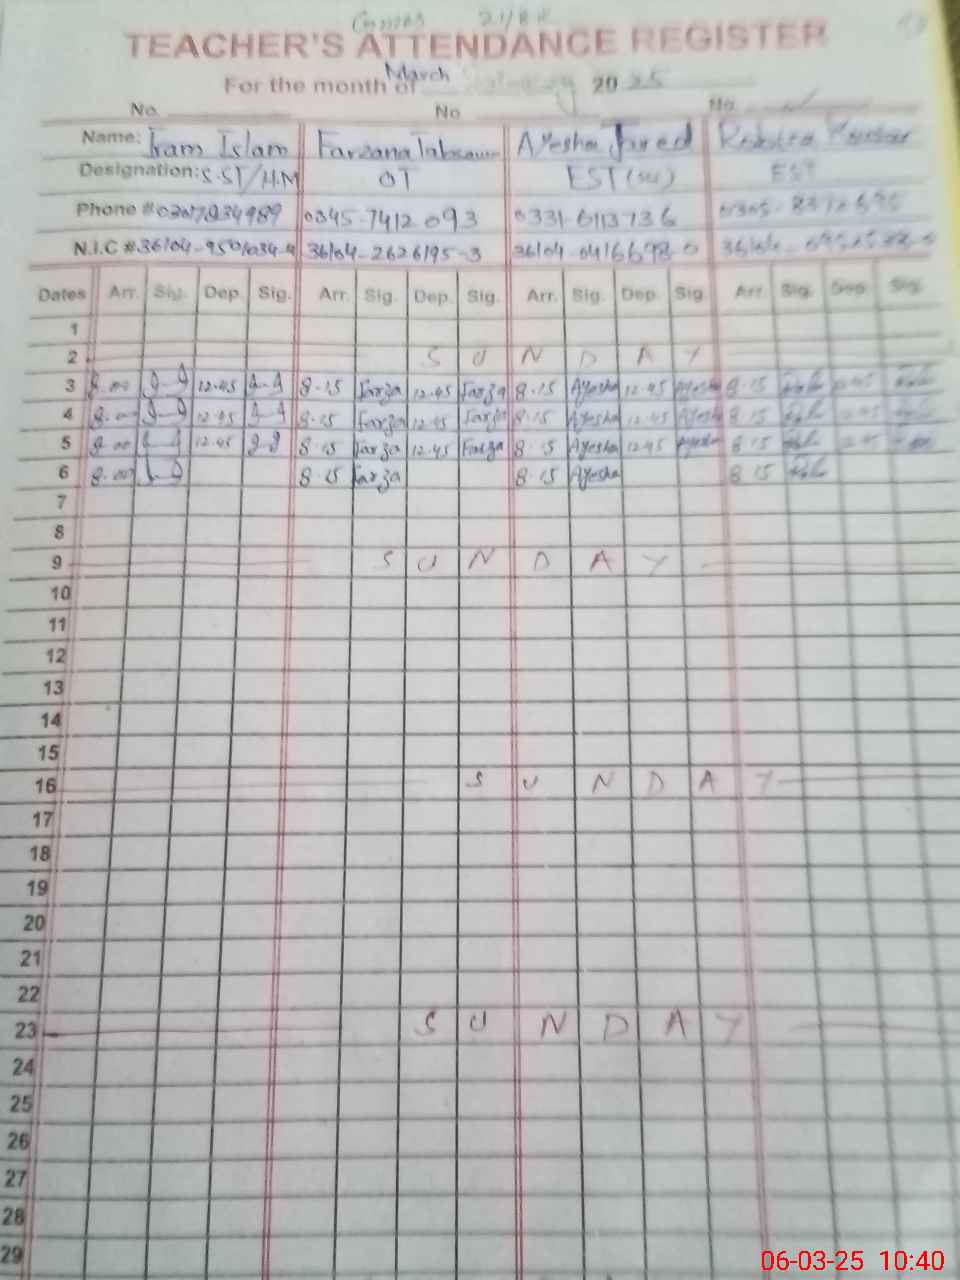 TEACHER'S ATTENDANCE REGISTER
For the month of March 2025
No. No No.
Name: Iram Islam Farzana Tabssum Ayesha Javed
Designation: S.ST/H.M OT EST
Phone # 0307934989 0345-7412093 0331-6113736
N.I.C # 36104-2626195-3 36104-0416698-0
Dates Arr. Sig. Dep. Sig. Arr. Sig. Dep. Sig. Arr. Sig. Dep. Sig. Arr. Sig. Dep Sig
1
2 S U N D A Y
3 8.00 12.45 8.15 Farza 12.45 Farza 8.15 Ayesha 12.45 Ayesha 8.15 12.45
4 8.00 12.45 8.15 Farza 12.45 Farza 8.15 Ayesha 12.45 Ayesha 8.15 12.45
5 8.00 12.45 8.15 Farza 12.45 Farza 8.15 Ayesha 12.45 Ayesha 8.15 12.45
6 8.00 8.15 Farza 8.15 Ayesha 8.15
7
8
9 S U N D A Y
10
11
12
13
14
15
16 S U N D A Y
17
18
19
20
21
22
23 S U N D A Y
24
25
26
27
28
29
06-03-25 10:40